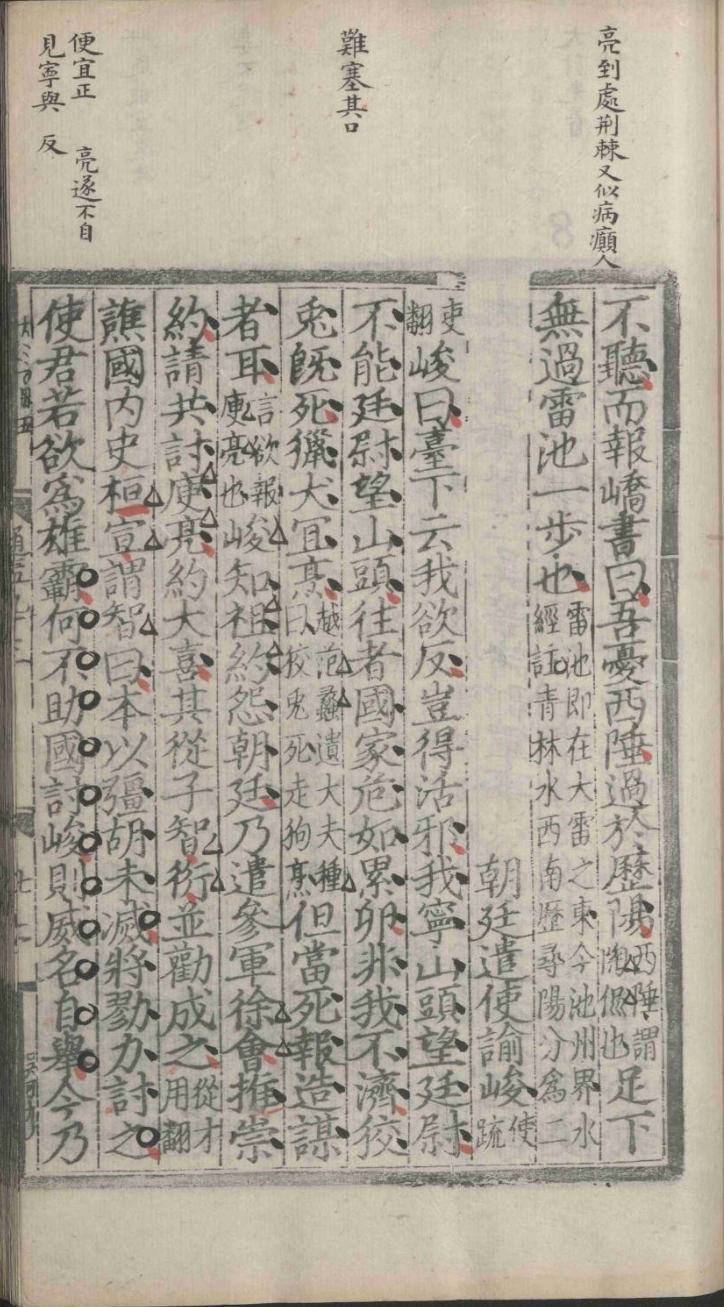 亮到處荆棘又似病癲人
難塞其口
便宜正
見寧與 反
亮遂不自
不聽而報嶠書曰吾憂西陲過於歷陽西陲謂陶侃也足下
無過雷池一步也雷池即在大雷之東今池州界水經註青林水西南歷尋陽分爲二
朝廷遣使諭峻使疏
吏翻峻曰臺下云我欲反豈得活邪我寧山頭望廷尉
不能廷尉望山頭往者國家危如累卵非我不濟狡
兎旣死獵犬宜烹越范蠡遺大夫種曰狡兎死走狗烹但當死報造謀
者耳言欲報庾亮也峻知祖約怨朝廷乃遣參軍徐會推崇
約請共討庾亮約大喜其從子智衍並勸成之從才用翻
譙國内史桓宣謂智曰本以彊胡未滅將勠力討之
使君若欲爲雄霸何不助國討峻則威名自舉今乃